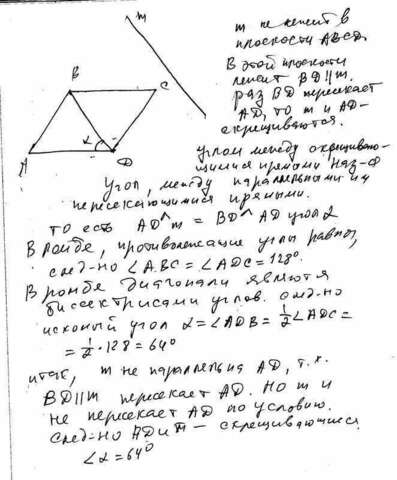 m
m не лежит в
плоскости ABCD.
B
C
В этой плоскости
лежит BD||m.
раз BD пересекает
AD, то m и AD-
скрещиваются.
α
A
D
углом между скрещиваю-
щимися прямыми наз-ся
угол, между параллельными им
пересекающимися прямыми.
то есть AD^m = BD^AD угол α
В ромбе, противолежащие углы равны,
след-но ∠ABC=∠ADC=128°.
В ромбе диагонали являются
биссектрисами углов. след-но
искомый угол α=∠ADB=1/2∠ADC=
=1/2·128=64°
итак, m не параллельна AD, т.к.
BD||m пересекает AD. Но m и
не пересекает AD по условию.
след-но AD и m — скрещивающиеся.
∠α=64°